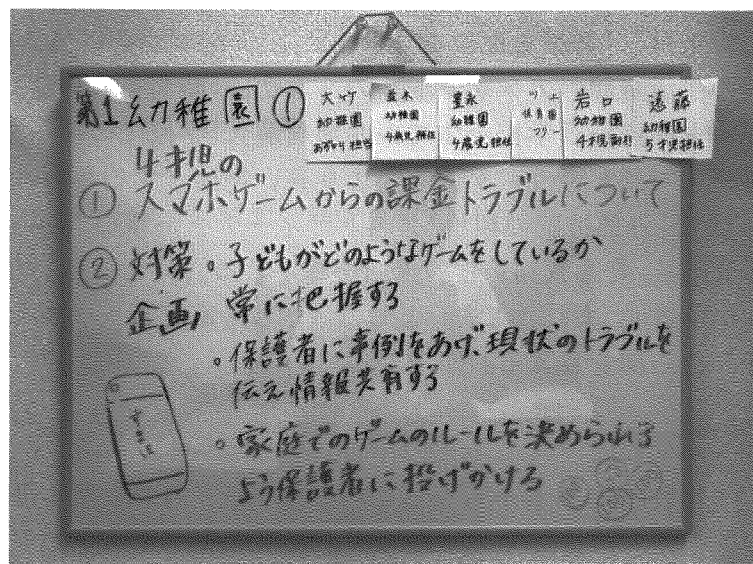 第1幼稚園 ①
大竹
幼稚園
並木
幼稚園
4歳児担任
豊永
幼稚園
4歳児担任
フリー
岩口
幼稚園
遠藤
幼稚園
5才児担任
4才児の
① スマホゲームからの課金トラブルについて
② 対策 。子どもがどのようなゲームをしているか
企画 常に把握する
。保護者に事例をあげ、現状のトラブルを
伝え情報共有する
。家庭でのゲームのルールを決められる
よう保護者に投げかける